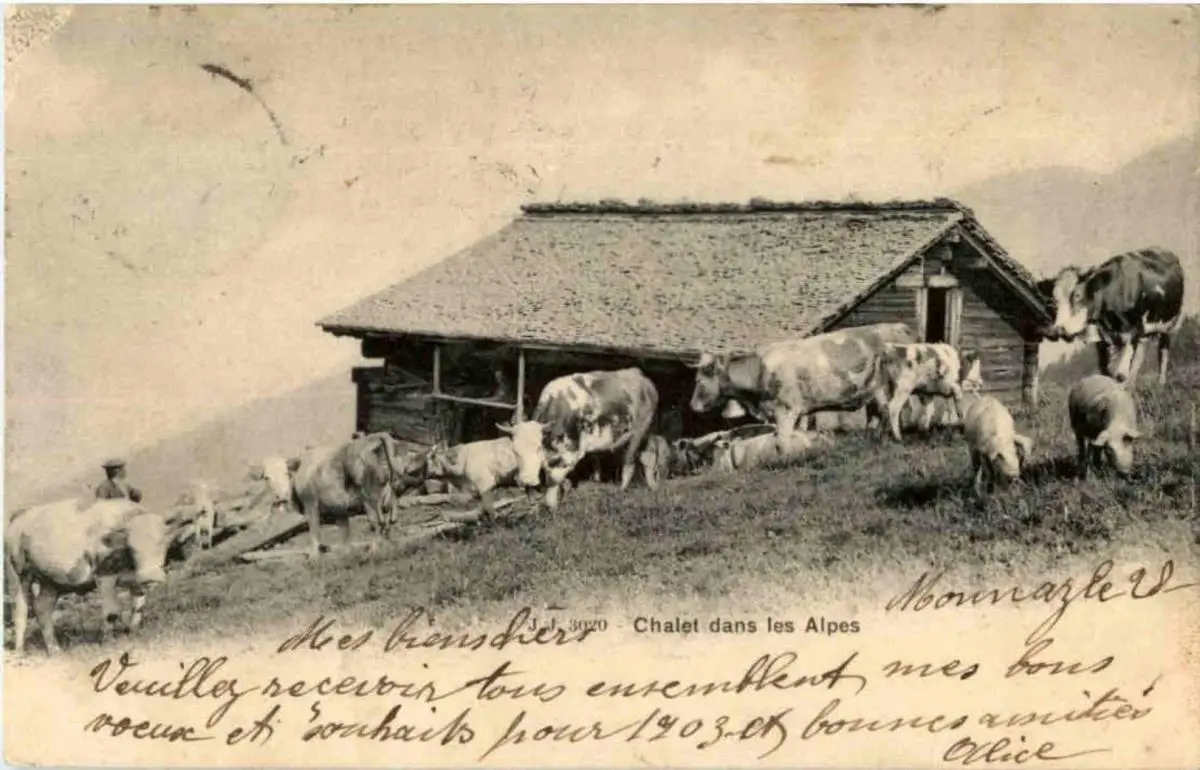 J.J. 3020 - Chalet dans les Alpes
Monnazle 28
Mes biens chers
Veuillez recevoir tous ensemble mes bons
voeux et souhaits pour 1903 et bonnes amitiés
Alice